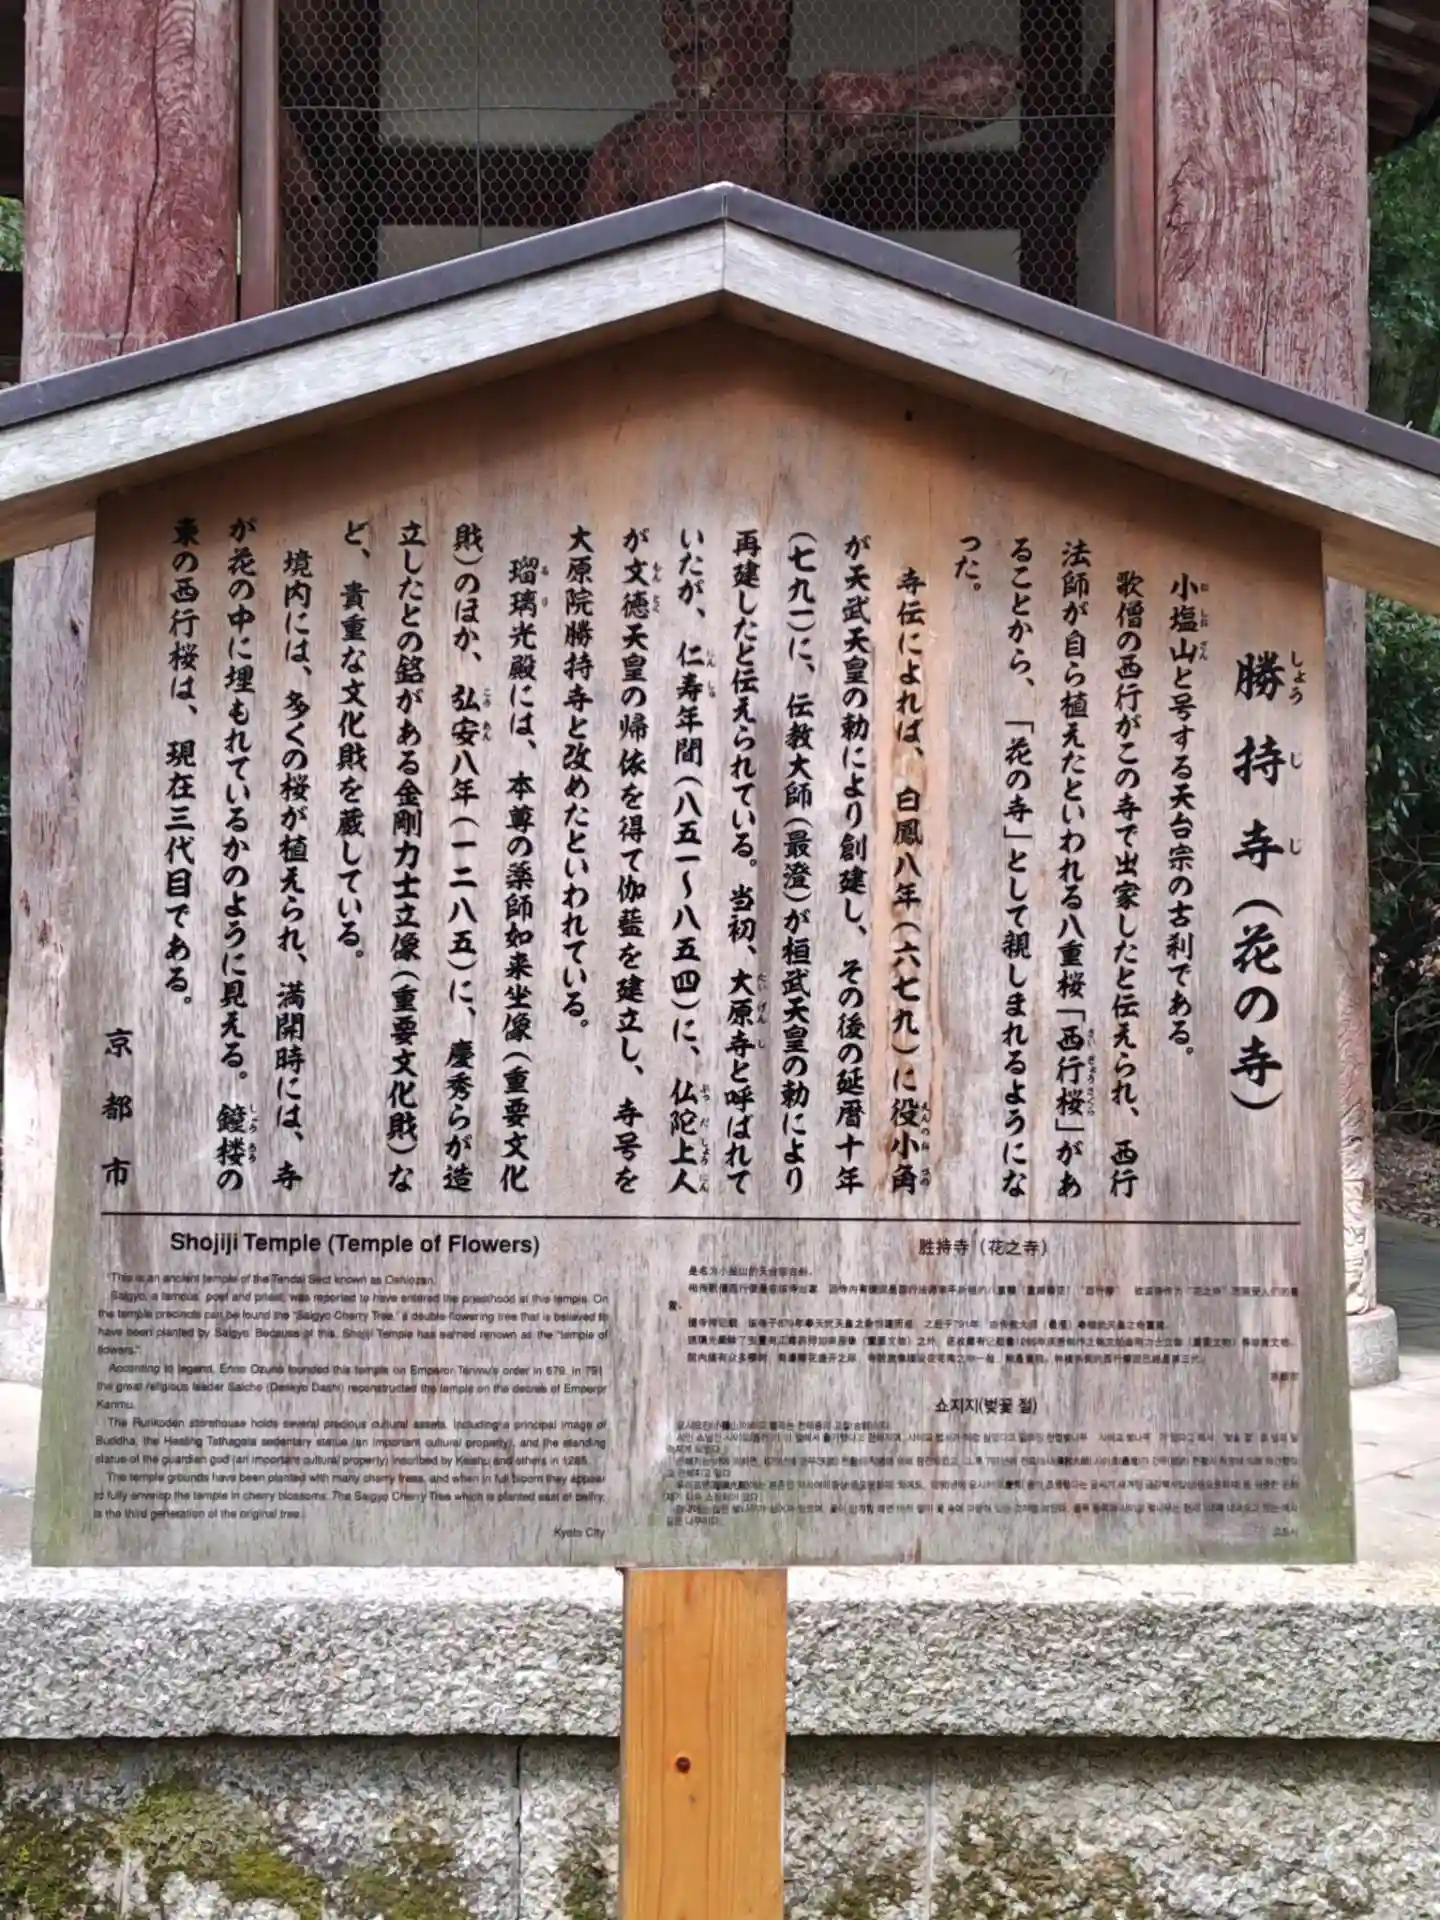 勝持寺（花の寺）
小塩山と号する天台宗の古刹である。
歌僧の西行がこの寺で出家したと伝えられ、西行
法師が自ら植えたといわれる八重桜「西行桜」があ
ることから、「花の寺」として親しまれるようにな
った。
寺伝によれば、白鳳八年（六七九）に役小角
が天武天皇の勅により創建し、その後の延暦十年
（七九一）に、伝教大師（最澄）が桓武天皇の勅により
再建したと伝えられている。当初、大原寺と呼ばれて
いたが、仁寿年間（八五一〜八五四）に、仏陀上人
が文徳天皇の帰依を得て伽藍を建立し、寺号を
大原院勝持寺と改めたといわれている。
瑠璃光殿には、本尊の薬師如来坐像（重要文化
財）のほか、弘安八年（一二八五）に、慶秀らが造
立したとの銘がある金剛力士立像（重要文化財）な
ど、貴重な文化財を蔵している。
境内には、多くの桜が植えられ、満開時には、寺
が花の中に埋もれているかのように見える。鐘楼の
東の西行桜は、現在三代目である。
京都市
Shojiji Temple (Temple of Flowers)
This is an ancient temple of the Tendai Sect known as Oshiozan.
Saigyo, a famous poet and priest, was reported to have entered the priesthood at this temple. On
the temple precincts can be found the "Saigyo Cherry Tree," a double-flowering tree that is believed to
have been planted by Saigyo. Because of this, Shojiji Temple has earned renown as the "temple of
flowers."
According to legend, Enno Ozuno founded this temple on Emperor Tenmu's order in 679. In 791
the great religious leader Saicho (Denkyo Daishi) reconstructed the temple on the decree of Emperor
Kanmu.
The Rurikoden storehouse holds several precious cultural assets, including a principal image of
Buddha, the Healing Tathagata sedentary statue (an important cultural property), and the standing
statue of the guardian god (an important cultural property) inscribed by Keishu and others in 1285.
The temple grounds have been planted with many cherry trees, and when in full bloom they appear
to fully envelop the temple in cherry blossoms. The Saigyo Cherry Tree which is planted east of belfry,
is the third generation of the original tree.
Kyoto City
胜持寺（花之寺）
是名为小盐山的天台宗古刹。
京都市
쇼지지(벚꽃 절)
교토시